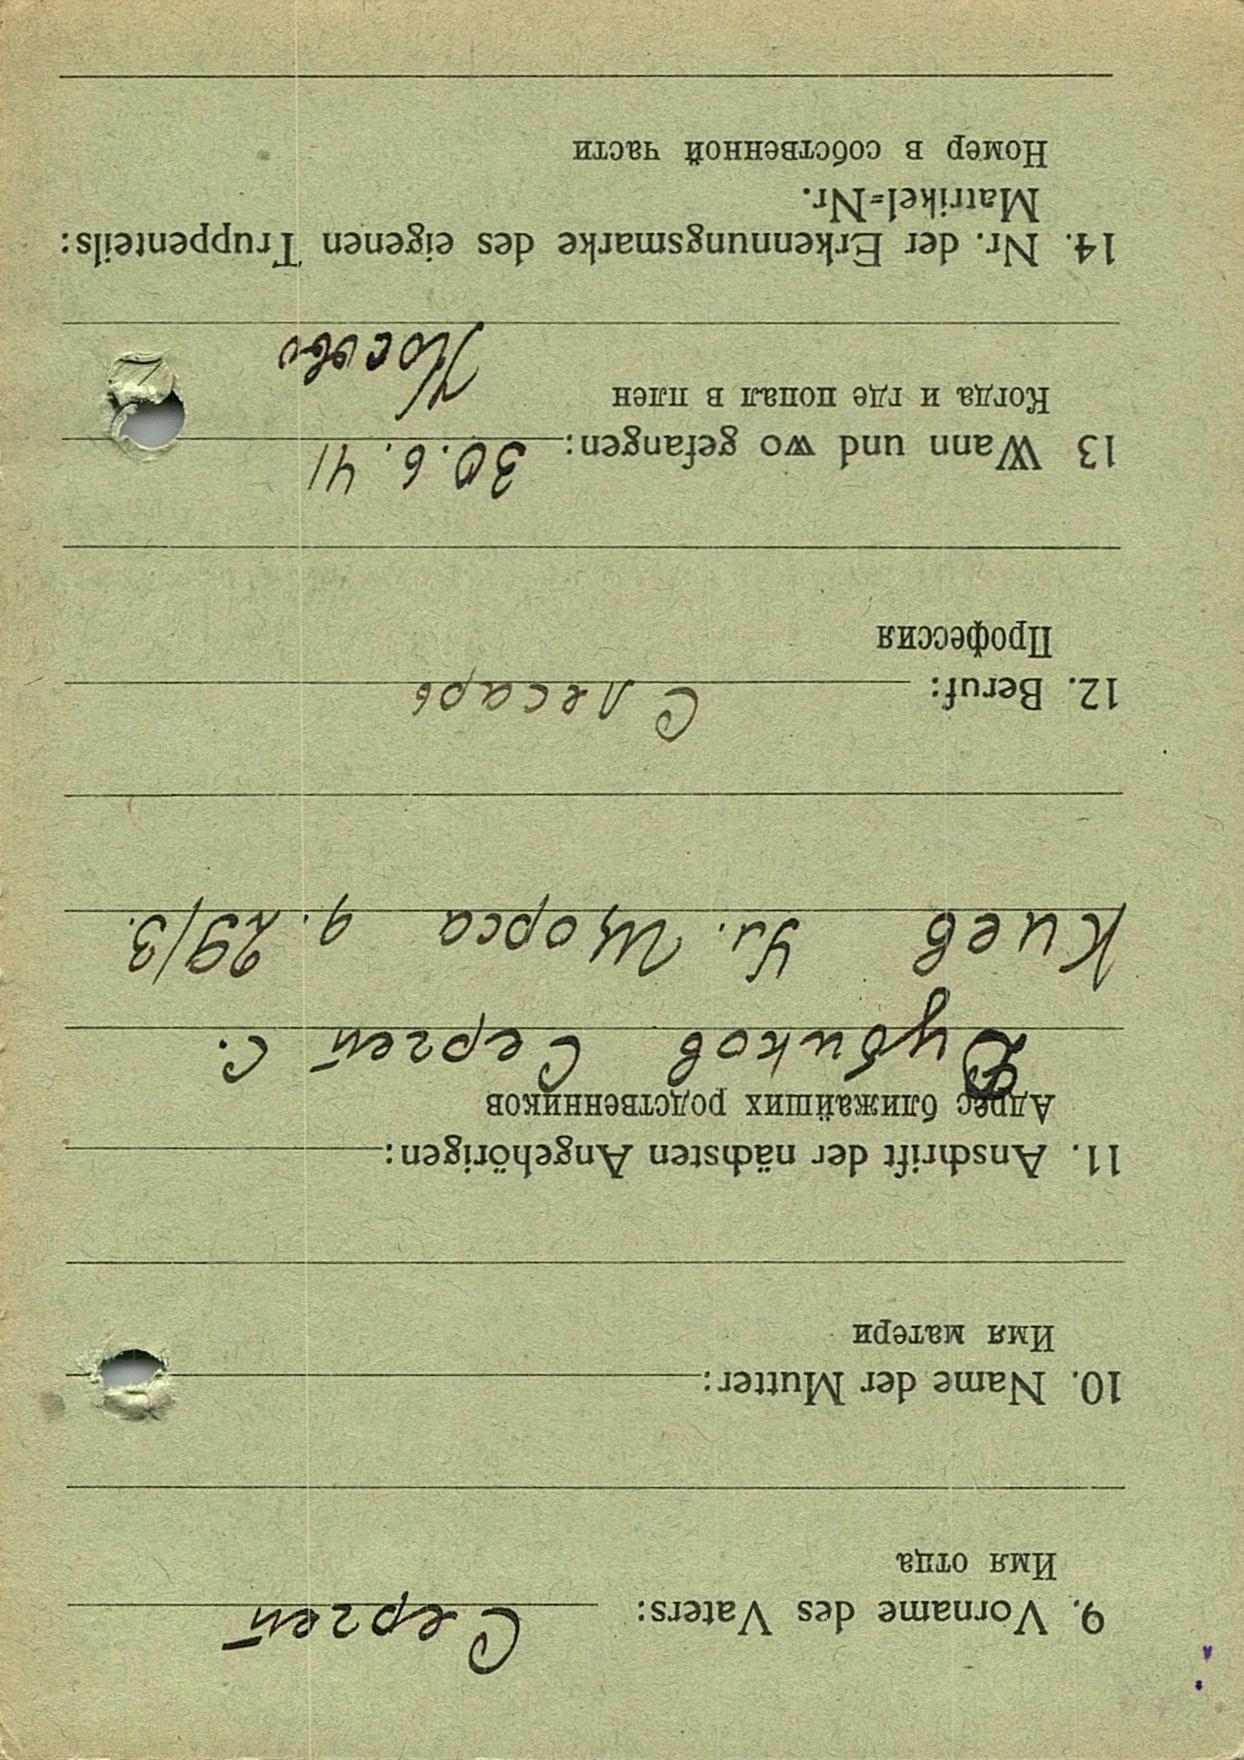 9. Vorname des Vaters: Сергей
Имя отца
10. Name der Mutter:
Имя матери
11. Anschrift der nächsten Angehörigen:
Адрес ближайших родственников
Дубиков Сергей С.
Киев Ул. Щорса д. 29/3.
12. Beruf: Слесарь
Профессия
13 Wann und wo gefangen: 30. 6. 41
Когда и где попал в плен
14. Nr. der Erkennungsmarke des eigenen Truppenteils:
Matrikel=Nr.
Номер в собственной части